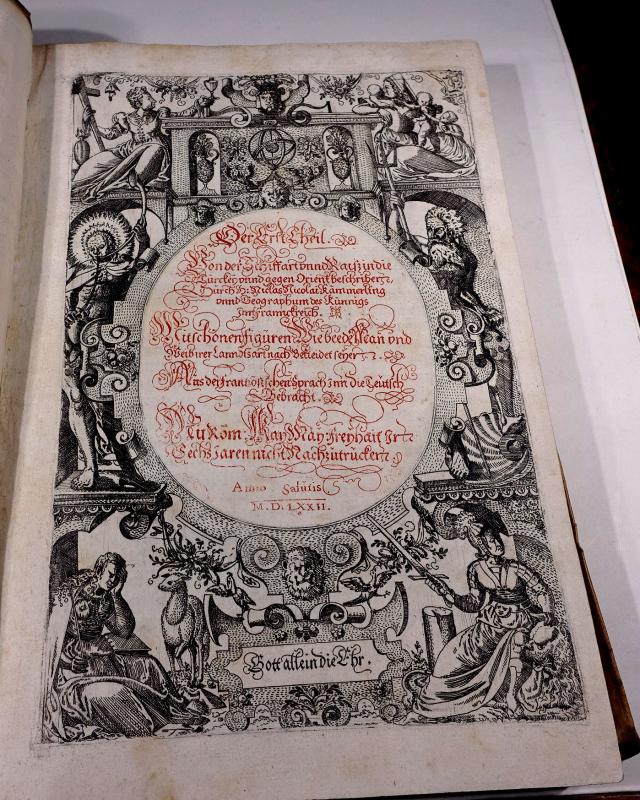 Der Erst Theil.
Von der Schiffart vnnd Raisz in die
Türckey vnnd gegen Orient beschriben,
Durch H: Niclas Nicolai Kämmerling
vnnd Geographum des Künnigs
inn Franckreich.
Mit schönen Figuren Wie beede Man vnd
Weib irer Lanndtsart nach Bekleidet seyen
Aus der Frantzösischen Sprach Inn die Teutsch
Gebracht.
Mit Röm: Kay: May: Freyhait Inn
Sechs Jaren nicht Nachzutrucken
Anno Salutis
M.D.LXXII.
Gott allein die Ehr.